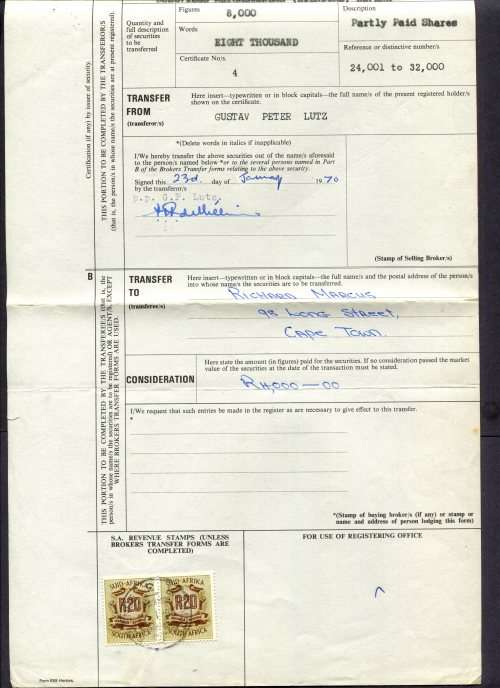 Quantity and full description of securities to be transferred
Figures
8,000
Words
EIGHT THOUSAND
Certificate No/s
4
Description
Partly Paid Shares
Reference or distinctive number/s
24,001 to 32,000
Certification (if any) by issuer of security.
THIS PORTION TO BE COMPLETED BY THE TRANSFEROR/S
(that is, the person/s in whose name/s the securities are at present registered).
TRANSFER FROM
(transferor/s)
Here insert—typewritten or in block capitals—the full name/s of the present registered holder/s
shown on the certificate.
GUSTAV PETER LUTZ
*(Delete words in italics if inapplicable)
I/We hereby transfer the above securities out of the name/s aforesaid
to the person/s named below *or to the several persons named in Part
B of the Brokers Transfer forms relating to the above security.
Signed this 23d. day of January 1970
by the transferor/s
p.p. G.P. Lutz.
(Stamp of Selling Broker/s)
B
THIS PORTION TO BE COMPLETED BY THE TRANSFEREE/S (that is, the
person/s in whose name/s the securities are to be registered) OR AGENT/S, EXCEPT
WHERE BROKERS TRANSFER FORMS ARE USED.
TRANSFER TO
(transferee/s)
Here insert—typewritten or in block capitals—the full name/s and the postal address of the person/s
into whose name/s the securities are to be transferred.
RICHARD MARCUS
98 LONG STREET,
CAPE TOWN.
CONSIDERATION
Here state the amount (in figures) paid for the securities. If no consideration passed the market
value of the securities at the date of the transaction must be stated.
R4,000—00
I/We request that such entries be made in the register as are necessary to give effect to this transfer.
*
*(Stamp of buying broker/s (if any) or stamp or
name and address of person lodging this form)
S.A. REVENUE STAMPS (UNLESS
BROKERS TRANSFER FORMS ARE
COMPLETED)
FOR USE OF REGISTERING OFFICE
SUID-AFRIKA SUID-AFRIKA
R20 R20
SOUTH AFRICA SOUTH AFRICA